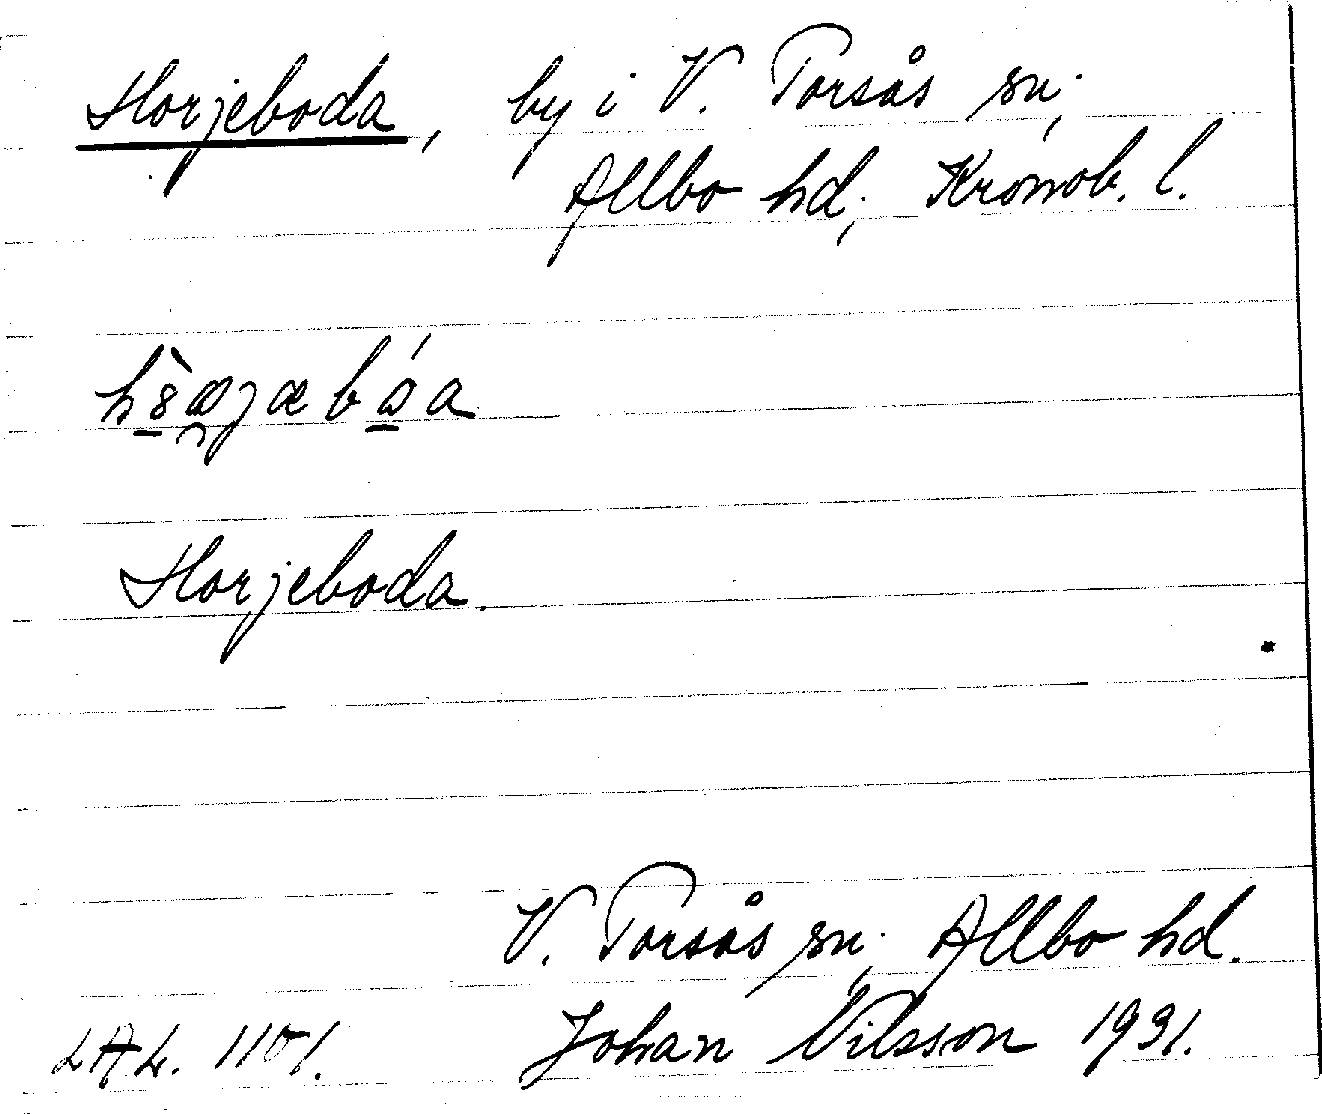 Horjeboda, by i V. Torsås sn;
Allbo hd; Kronob. l.
Horjeboda.
V. Torsås sn; Allbo hd.
LAL. 1101. Johan Nilsson 1931.